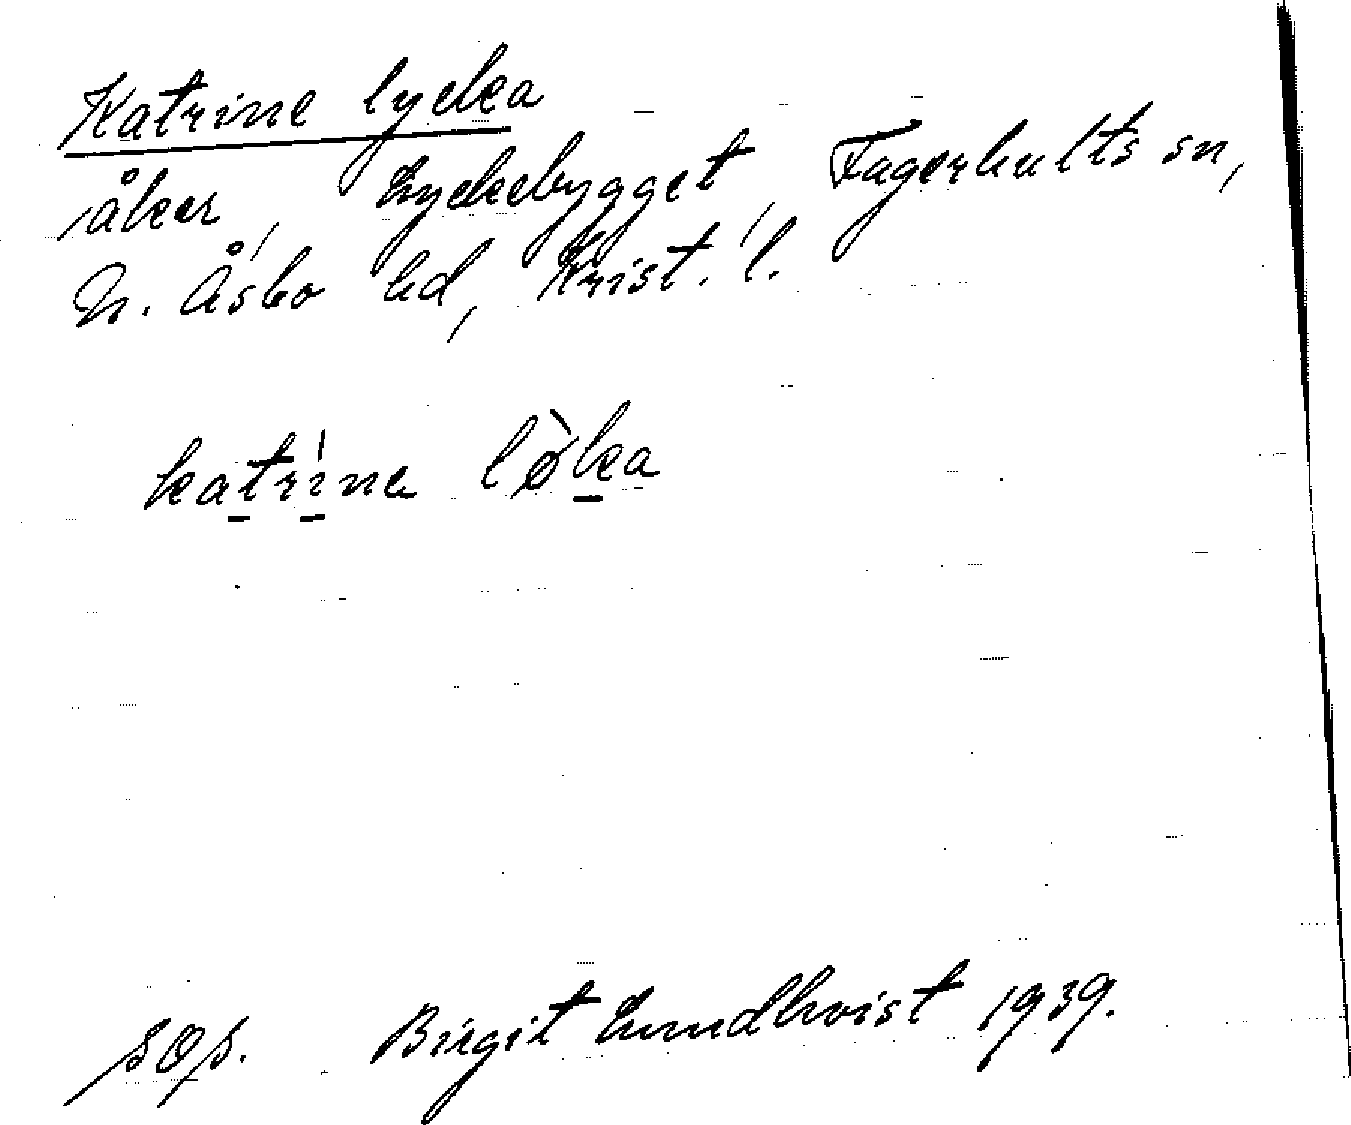 Katrine lycka
åker, Lyckebygget, Fagerhults sn,
N. Åsbo hd, Krist. l.
katríne lø̀ka
sop. Birgit Lundkvist 1939.